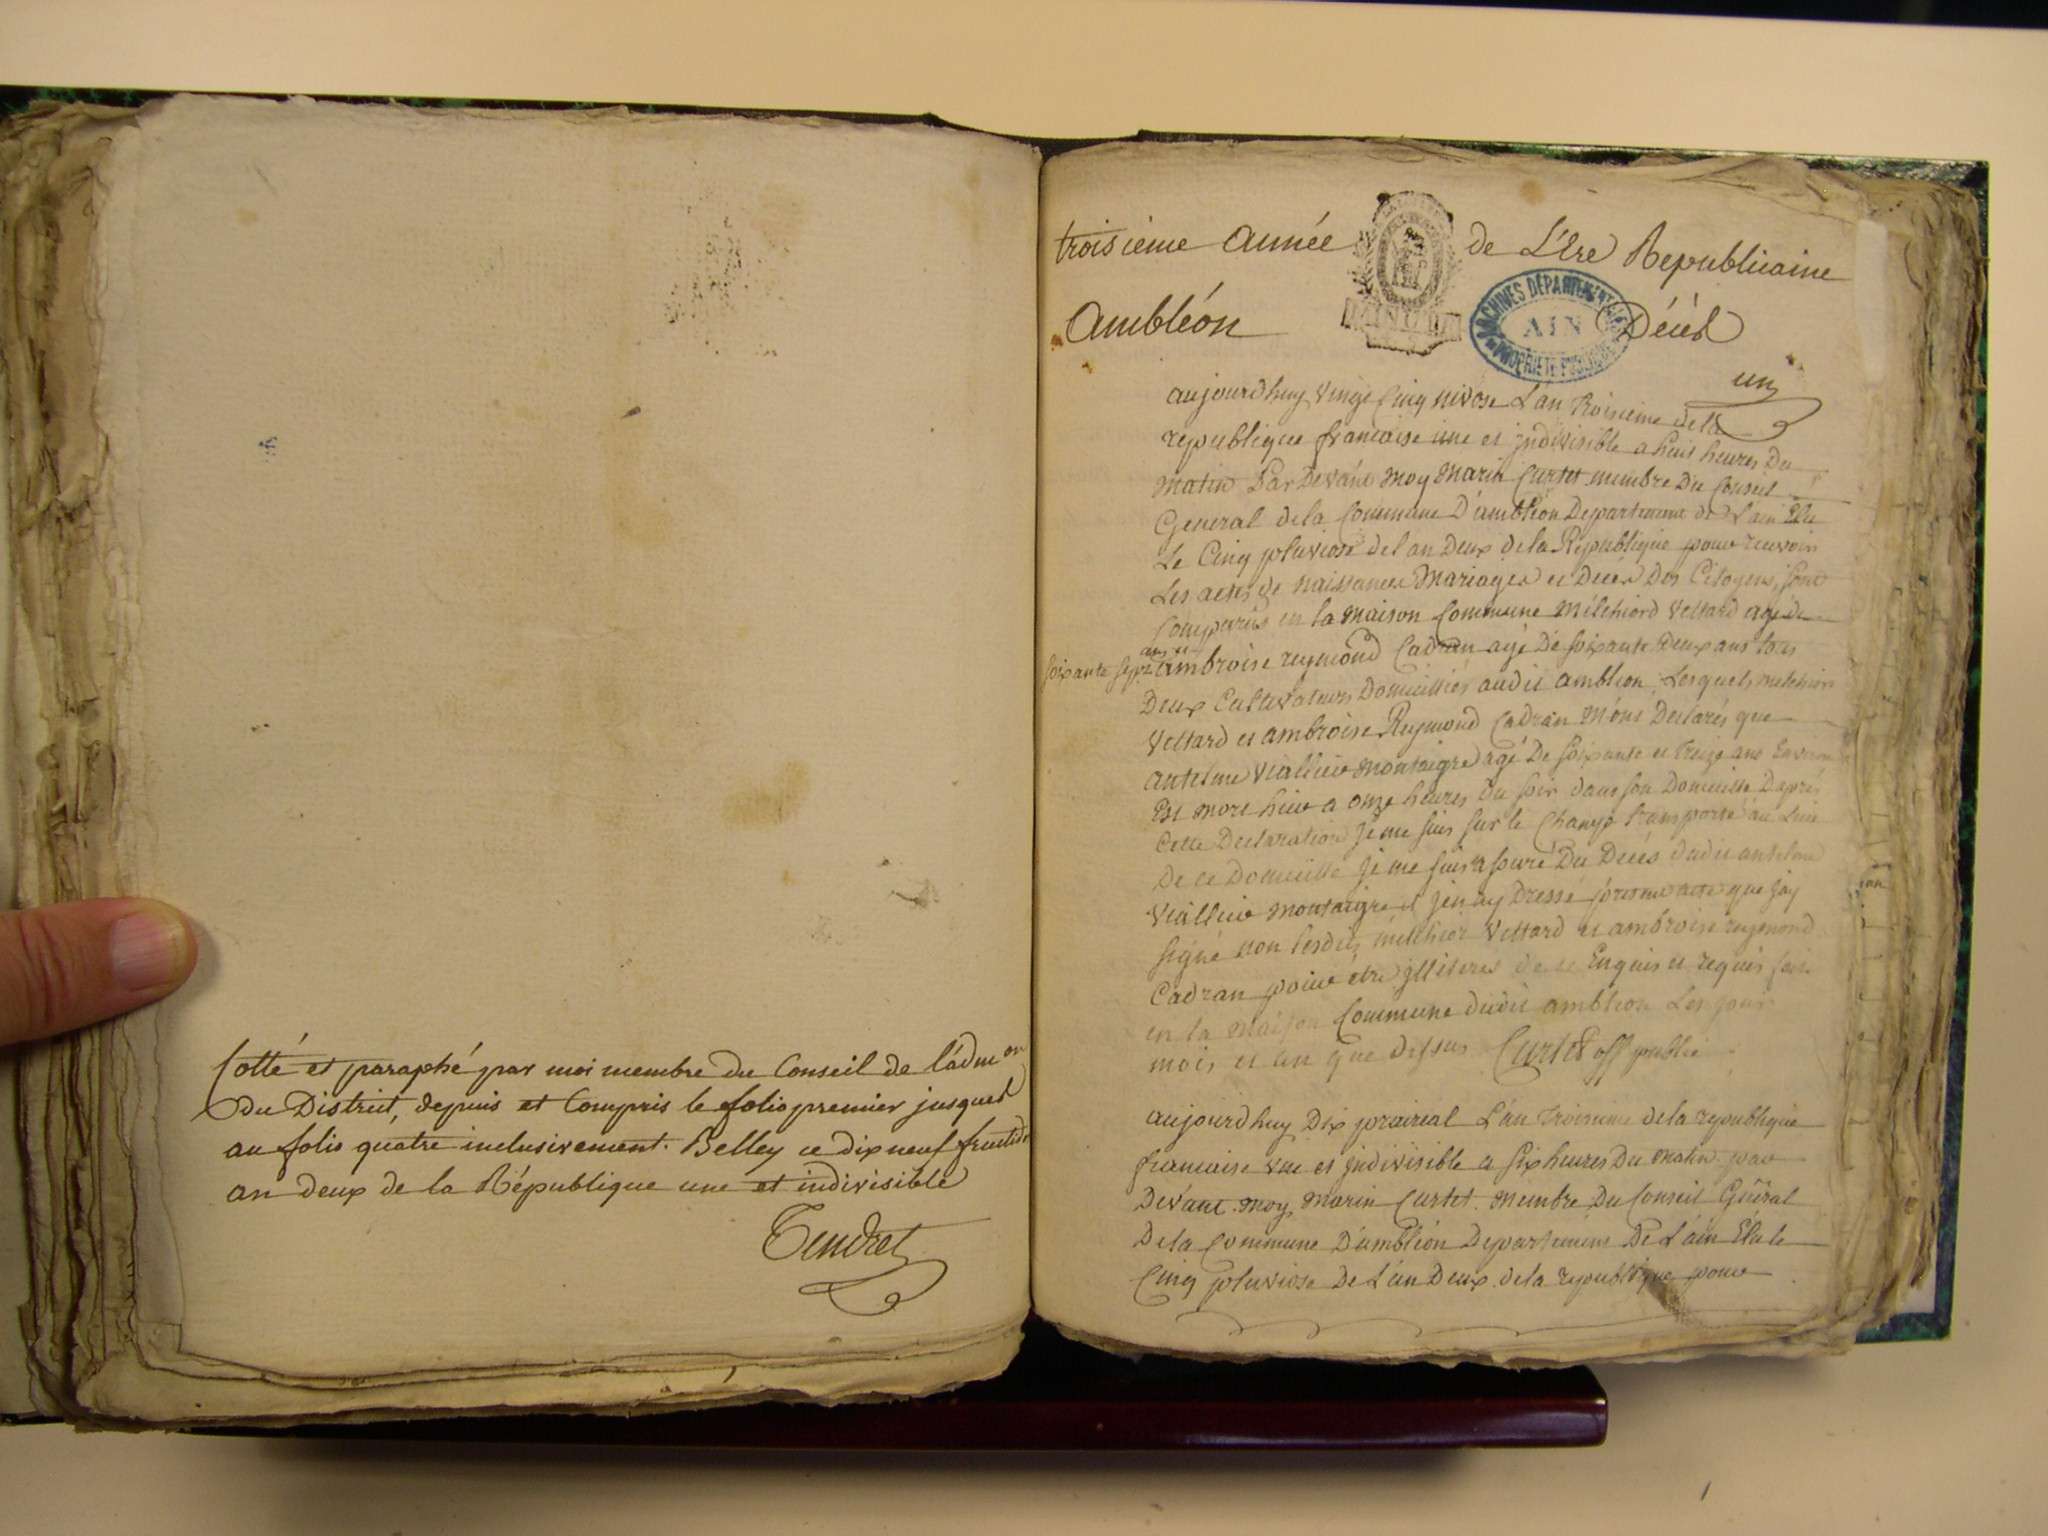 Cotté et paraphé par moi membre du Conseil de l'adm.on
du District, depuis et Compris le folio premier jusques
au folio quatre inclusivement. Belley ce dix neuf fructidr
an deux de la République une et indivisible
Tendret
troisieme année de L'Ere Republicaine
Ambléon Décès
ARCHINES DÉPARTEMENTALES
AIN
PROPRIÉTÉ PUBLIQUE
un
aujourdhuy vingt Cinq nivose L'an troisieme de la
republique francaise une et jndivisible a huit heures Du
matin Par Devant moy marin Curtet membre Du Conseil
General dela Commune D'ambléon Departement de L'ain Elu
Le Cinq pluviose del an Deux dela Republique pour recevoir
Les actes de naissances mariages et Decés Des Citoyens, sont
Comparus en la maison Commune mélchiord Vettard agé de
soixante sept ans et ambroise reymond Cadran agé De soixante Deux ans tous
Deux Cultivateurs Domicilliés audit ambléon, Lesquels melchior
Vettard et ambroise Reymond Cadran m'ont Declarés que
antelme viallieu montaigre agé De soixante et treize ans Environ
Est mort hier a onze heures du soir dans son Domicille D'aprés
Cette Declaration je me suis sur le Champ transporté au Lieu
De ce Domicille je me suis assuré Du Decés dudit antelme
viallieu montaigre et j'en ay Dressé acte que j'ay
signé non lesdits melchior Vettard et ambroise reymond
Cadran pour être jlliteres de ce Enquis et requis fait
en la maison Commune dudit ambléon Les jour
mois et an que Dessus Curtet off public
aujourdhuy Dix prairial L'an troisieme dela republique
francaise une et jndivisible a six heures Du matin par
Devant moy marin Curtet membre Du Conseil Général
Dela Commune D'ambléon Departement De L'ain Elu le
Cinq pluviose De L'an Deux dela republique pour